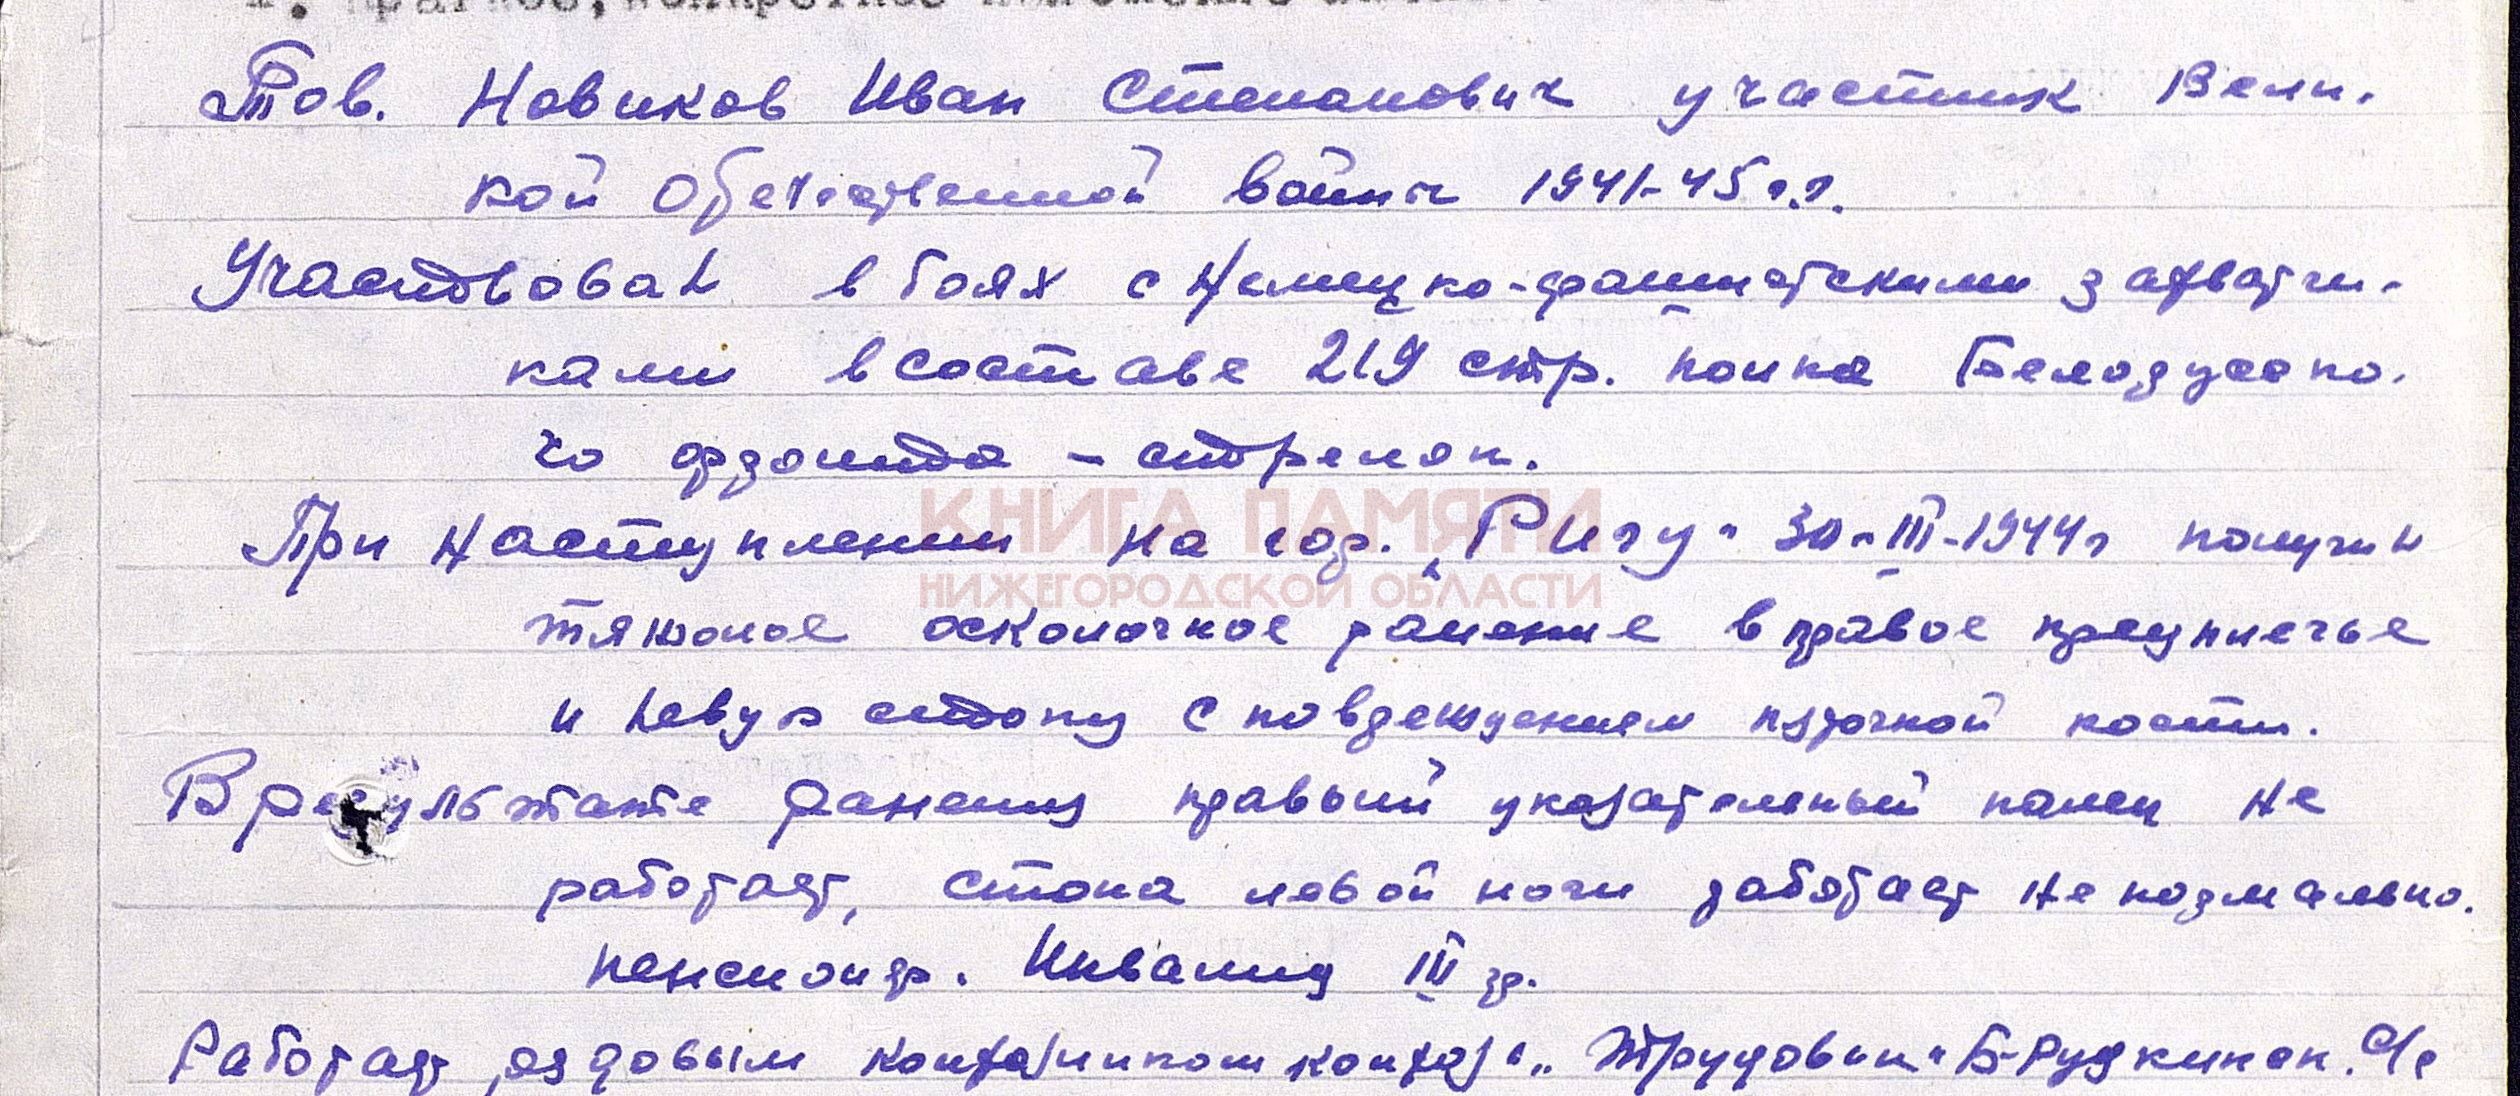 1. Краткое, конкретное изложение
Тов. Новиков Иван Степанович участник Вели-
кой Отечественной войны 1941-45 г.г.
Участвовал в боях с немецко-фашистскими захватчи-
ками в составе 219 стр. полка Белорусско-
го фронта - стрелок.
При наступлении на гор. "Ригу" 30-III-1944г получил
КНИГА ПАМЯТИ
НИЖЕГОРОДСКОЙ ОБЛАСТИ
тяжолое осколочное ранение в правое предплечье
и левую стопу с повреждением пяточной кости.
В результате ранения правый указательный палец не
работает, стопа левой ноги работает не нормально.
пенсионер. Инвалид III гр.
Работает рядовым колхозником колхоза "Трудовик" Б-Рудкинск. С/с